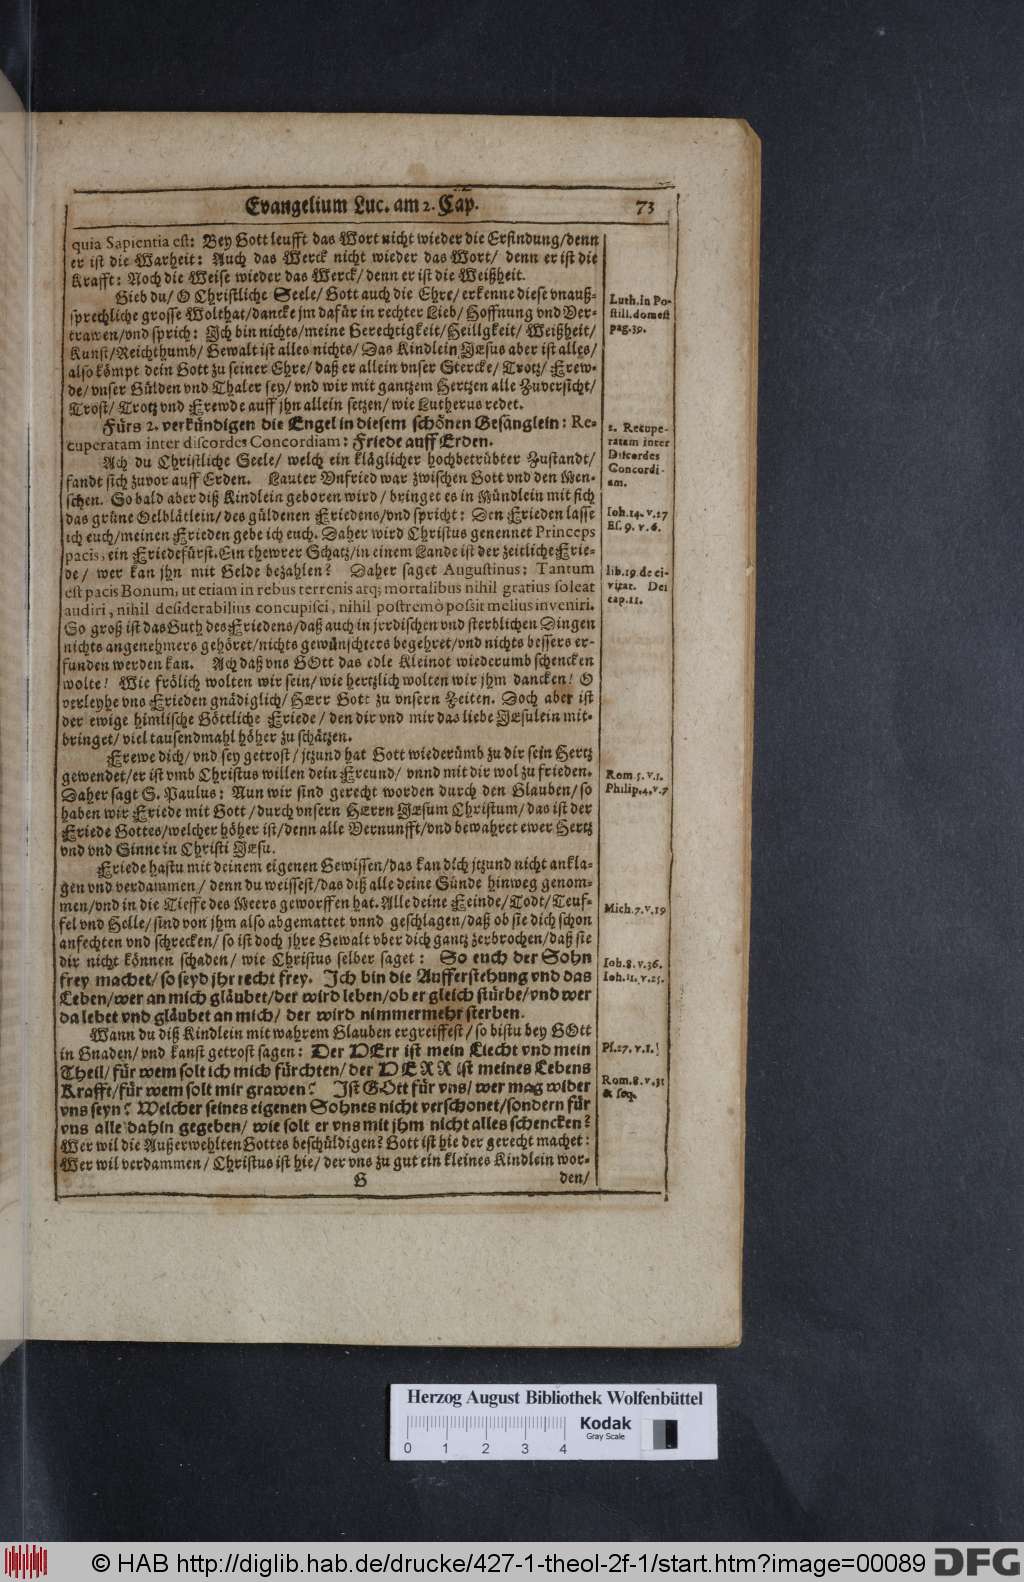 Evangelium Luc. am 2. Cap. 73
quia Sapientia est: Bey Gott leufft das Wort nicht wieder die Erfindung/denn
er ist die Warheit: Auch das Werck nicht wieder das Wort/ denn er ist die
Krafft: Noch die Weise wieder das Werck/denn er ist die Weißheit.
Gieb du/ O Christliche Seele/ Gott auch die Ehre/ erkenne diese vnauß-
sprechliche grosse Wolthat/dancke jm dafür in rechter Lieb/ Hoffnung vnd Ver-
trawen/vnd sprich: Ich bin nichts/meine Gerechtigkeit/Heiligkeit/ Weißheit/
Kunst/Reichthumb/ Gewalt ist alles nichts/ Das Kindlein JEsus aber ist alles/
also kömpt dein Gott zu seiner Ehre/ daß er allein vnser Stercke/ Trotz/ Frew-
de/vnser Gülden vnd Thaler sey/ vnd wir mit gantzem Hertzen alle Zuversicht/
Trost/ Trotz vnd Frewde auff jhn allein setzen/ wie Lutherus redet.
Luth. in Po-
still. domest
pag. 39.
Fürs 2. verkündigen die Engel in diesem schönen Gesänglein: Re-
cuperatam inter discordes Concordiam: Friede auff Erden.
2. Recupe-
ratam inter
Discordes
Concordi-
am.
Ach du Christliche Seele/ welch ein kläglicher hochbetrübter Zustandt/
fandt sich zuvor auff Erden. Lauter Vnfried war zwischen Gott vnd den Men-
schen. So bald aber diß Kindlein geboren wird/ bringet es in Mündlein mit sich
das grüne Oelblätlein/des güldenen Friedens/vnd spricht: Den Frieden lasse
ich euch/meinen Frieden gebe ich euch. Daher wird Christus genennet Princeps
pacis, ein Friedefürst. Ein thewrer Schatz/in einem Lande ist der zeitliche Frie-
de/ wer kan jhn mit Gelde bezahlen? Daher saget Augustinus: Tantum
est pacis Bonum, ut etiam in rebus terrenis atq; mortalibus nihil gratius soleat
audiri, nihil desiderabilius concupisci, nihil postremò possit melius inveniri.
So groß ist das Guth des Friedens/daß auch in jrrdischen vnd sterblichen Dingen
nichts angenehmers gehöret/nichts gewünschters begehret/vnd nichts bessers er-
funden werden kan. Ach daß vns GOtt das edle Kleinot wiederumb schencken
wolte! Wie frölich wolten wir sein/ wie hertzlich wolten wir jhm dancken! O
verleyhe vns Frieden gnädiglich/ HErr Gott zu vnsern Zeiten. Doch aber ist
der ewige himlische Göttliche Friede/ den dir vnd mir das liebe JEsulein mit-
bringet/ viel tausendmahl höher zu schätzen.
Ioh. 14. v. 27
Es. 9. v. 6.
lib. 19. de ci-
vitat. Dei
cap. 11.
Frewe dich/ vnd sey getrost/ jtzund hat Gott wiederümb zu dir sein Hertz
gewendet/er ist vmb Christus willen dein Freund/ vnnd mit dir wol zu frieden.
Daher sagt S. Paulus: Nun wir sind gerecht worden durch den Glauben/ so
haben wir Friede mit Gott/durch vnsern HErrn JEsum Christum/ das ist der
Friede Gottes/welcher höher ist/denn alle Vernunfft/vnd bewahret ewer Hertz
vnd vnd Sinne in Christi JEsu.
Rom 5. v. 1.
Philip. 4. v. 7
Friede hastu mit deinem eigenen Gewissen/das kan dich jtzund nicht ankla-
gen vnd verdammen/ denn du weissest/das diß alle deine Sünde hinweg genom-
men/vnd in die Tieffe des Meers geworffen hat. Alle deine Feinde/Todt/Teuf-
fel vnd Helle/sind von jhm also abgemattet vnnd geschlagen/daß ob sie dich schon
anfechten vnd schrecken/ so ist doch jhre Gewalt vber dich gantz zerbrochen/daß sie
dir nicht können schaden/ wie Christus selber saget: So euch der Sohn
frey machet/ so seyd jhr recht frey. Ich bin die Aufferstehung vnd das
Leben/wer an mich gläubet/der wird leben/ob er gleich stürbe/vnd wer
da lebet vnd gläubet an mich/ der wird nimmermehr sterben.
Mich. 7. v. 19
Ioh. 8. v. 36.
Ioh. 11. v. 25.
Wann du diß Kindlein mit wahrem Glauben ergreiffest/ so bistu bey GOtt
in Gnaden/ vnd kanst getrost sagen: Der HErr ist mein Liecht vnd mein
Theil/ für wem solt ich mich fürchten/ der HERR ist meines Lebens
Krafft/für wem solt mir grawen? Ist GOtt für vns/ wer mag wider
vns seyn? Welcher seines eigenen Sohnes nicht verschonet/sondern für
vns alle dahin gegeben/ wie solt er vns mit jhm nicht alles schencken?
Wer wil die Außerwehlten Gottes beschüldigen? Gott ist hie der gerecht machet:
Wer wil verdammen/ Christus ist hie/ der vns zu gut ein kleines Kindlein wor-
Ps. 27. v. 1.
Rom. 8. v. 31
& seq.
G den/
Herzog August Bibliothek Wolfenbüttel
0 1 2 3 4
Kodak
Gray Scale
© HAB http://diglib.hab.de/drucke/427-1-theol-2f-1/start.htm?image=00089 DFG